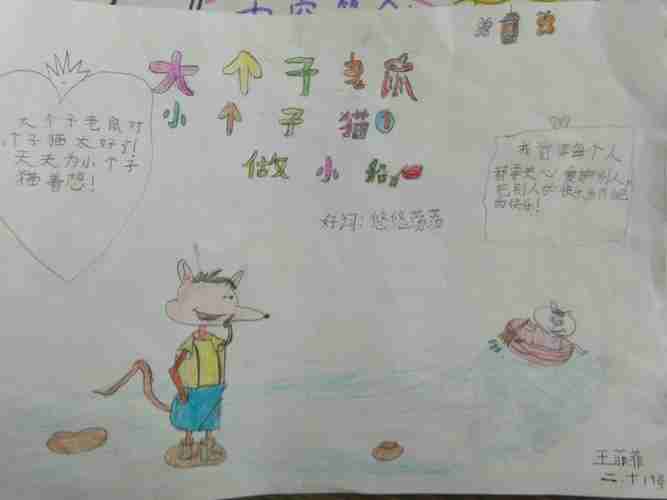 大个子老鼠
小个子猫①
做小船
好词:悠悠荡荡
大个子老鼠对
小个子猫太好了!
天天为小个子
猫着想!
每个人
关心 爱护别人,
把别人的快乐当作自己
的快乐!
王菲菲
二.十